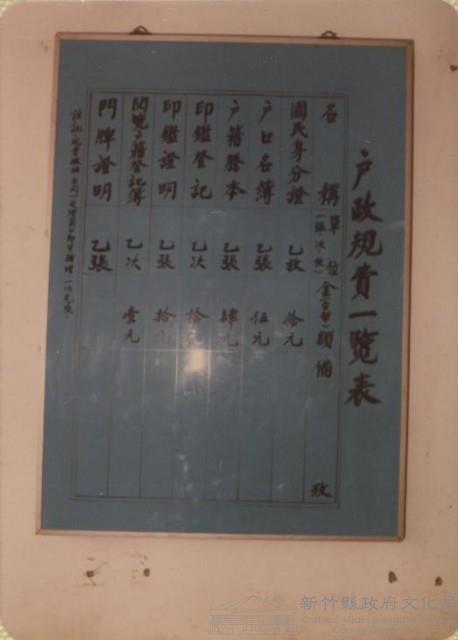 戶政規費一覽表
名稱 單位(張次枚) 金(台幣)額 備攷
國民身分證 乙枚 拾元
戶口名簿 乙張 伍元
戶籍謄本 乙張 肆元
印鑑登記 乙次 拾元
印鑑證明 乙張 拾元
閱覽戶籍登記簿 乙次 壹元
門牌證明 乙張
新竹縣政府文化局